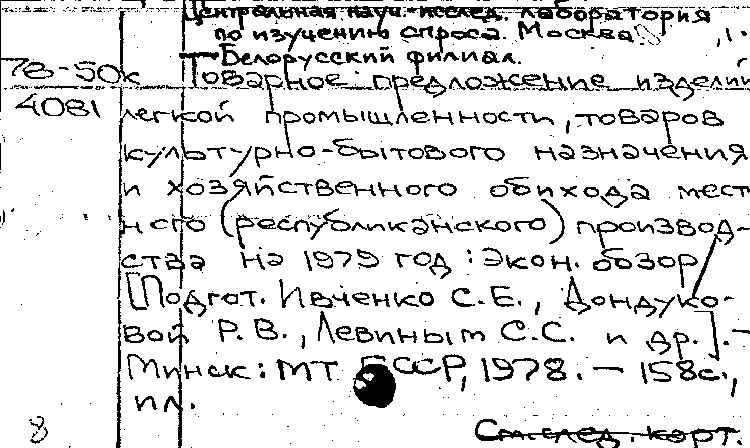 Центральная науч.-исслед. лаборатория
по изучению спроса. Москва.
Белорусский филиал.
78-50к Товарное предложение изделий
4081 легкой промышленности, товаров
культурно-бытового назначения
и хозяйственного обихода мест
ного (республиканского) производ-
ства на 1979 год : Экон. обзор
[Подгот. Ивченко С.Е., Дондуко-
вой Р.В., Левиным С.С. и др.].-
Минск: МТ БССР, 1978. - 158с.,
ил.
8 См.след. карт.